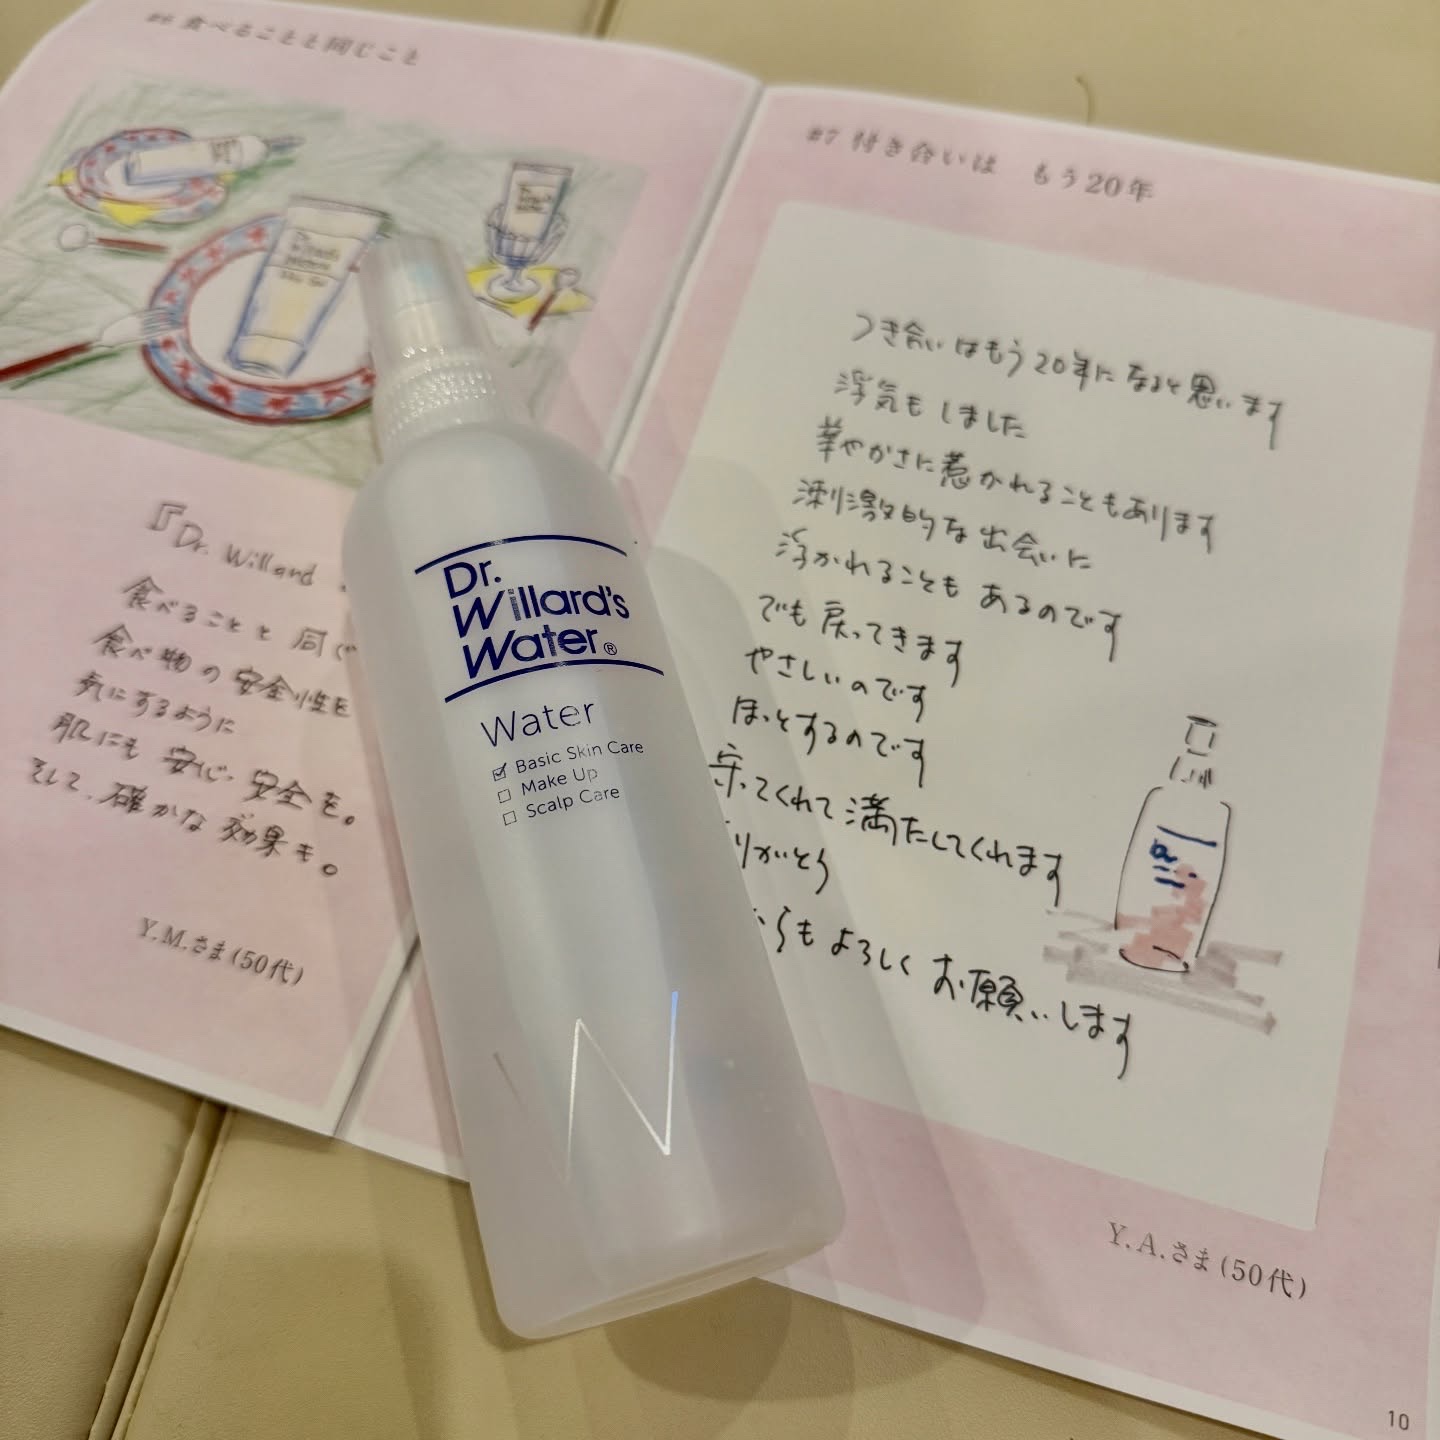 #6 食べることと同じこと
『Dr. Willard
食べることと同じ
食べ物の安全性を
気にするように
肌にも安心、安全を。
そして、確かな効果も。
Y.M.さま(50代)
Dr.
Willard's
Water®
Water
☑ Basic Skin Care
☐ Make Up
☐ Scalp Care
W
#7 付き合いは もう20年
つき合いはもう20年になると思います
浮気もしました
華やかさに惹かれることもあります
刺激的な出会いに
浮かれることもあるのです
でも戻ってきます
やさしいのです
ほっとするのです
守ってくれて満たしてくれます
りがとう
らもよろしくお願いします
Y.A.さま(50代)
10